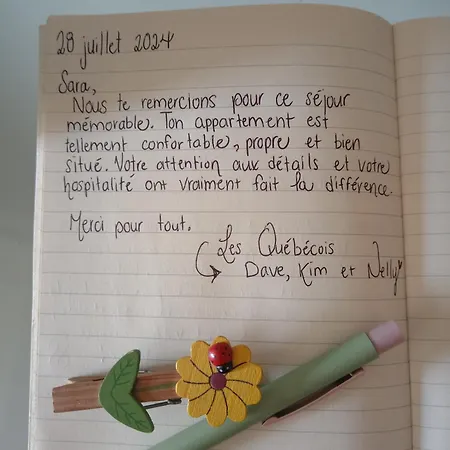 28 juillet 2024
Sara,
Nous te remercions pour ce séjour
mémorable. Ton appartement est
tellement confortable, propre et bien
situé. Votre attention aux détails et votre
hospitalité ont vraiment fait la différence.
Merci pour tout.
Les Québécois
Dave, Kim et Nelly